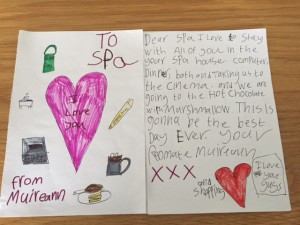 TO
Spa
I
Love
you
from
Muireann
Dear Spa I Love to Stay
with All of you in the
your Spa house computer,
Dinner, both and Taking us to
the Cinema. and we are
going to the Hot Chocolate
with Marshmallow. This is
gonna be the best
Day Ever your
Muireann
XXX
and
shopping
I Love
you
Guys